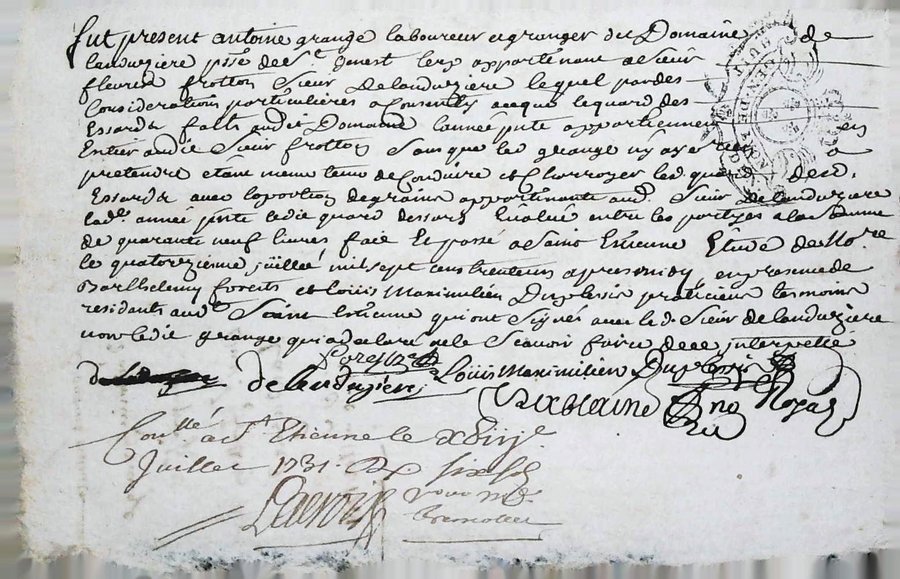 fut present antoine grange laboureur et granger du Domaine de
landuziere psse de St genest lerp appartenant a Sieur
fleurie frotton Sieur Delanduziere lequel par des
Considerations particulieres a Consenty aceque lequard des
Essards faits audit Domaine lannée pnte appartiennent en
Entier audit Sieur frotton Sans que led grange ny aye rien a
pretendre etant meme tenu de Conduire et Charroyer led quard des
Essards avec la portion de grains appartenante aud Sieur Delanduziere
lad année pnte ledit quard dessards Evalué entre les parties a la Somme
de quarante neuf livres fait Et passé a Saint Etienne Etude de No.re
le quatorzieme juillet mil sept cens trente un apres midy en presence de
Barthelemy forests et Louis Maximilien Duplessis praticiens temoins
residants aud Saint Estienne qui ont Signés avec le d. Sieur de landuziere
non ledit grange qui a declaré ne le Scavoir faire de ce interpellé
Delanduziere Louis Maximilien Duplessis
no Royal
Conllé a St Etienne le
Juillet 1731. six sols